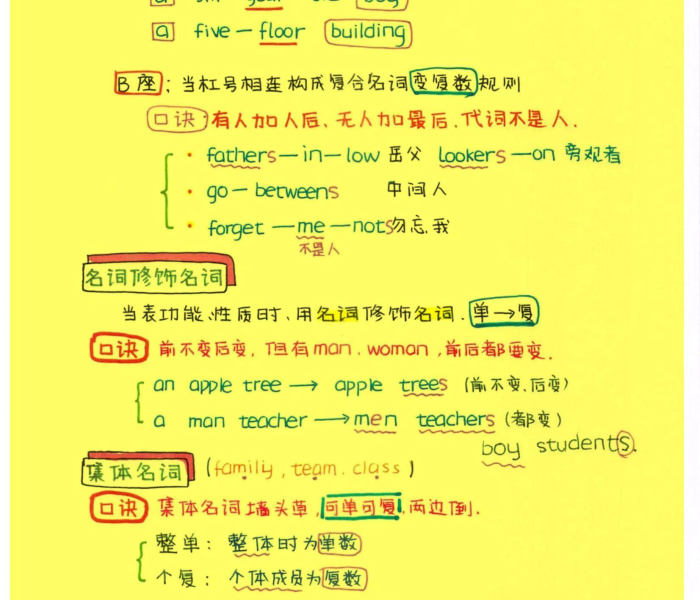 a five—floor building
B座：当杠号相连构成复合名词变复数规则
口诀：有人加人后、无人加最后、代词不是人.
• fathers—in—low 岳父 lookers—on 旁观者
• go—betweens 中间人
• forget—me—nots勿忘我
不是人
名词修饰名词
当表功能、性质时、用名词修饰名词. 单→复
口诀 前不变后变, 但有man、woman, 前后都要变.
an apple tree → apple trees (前不变、后变)
a man teacher → men teachers (都变)
boy students.
集体名词 (family, team. class)
口诀 集体名词墙头草, 可单可复, 两边倒.
整单: 整体时为单数
个复: 个体成员为复数